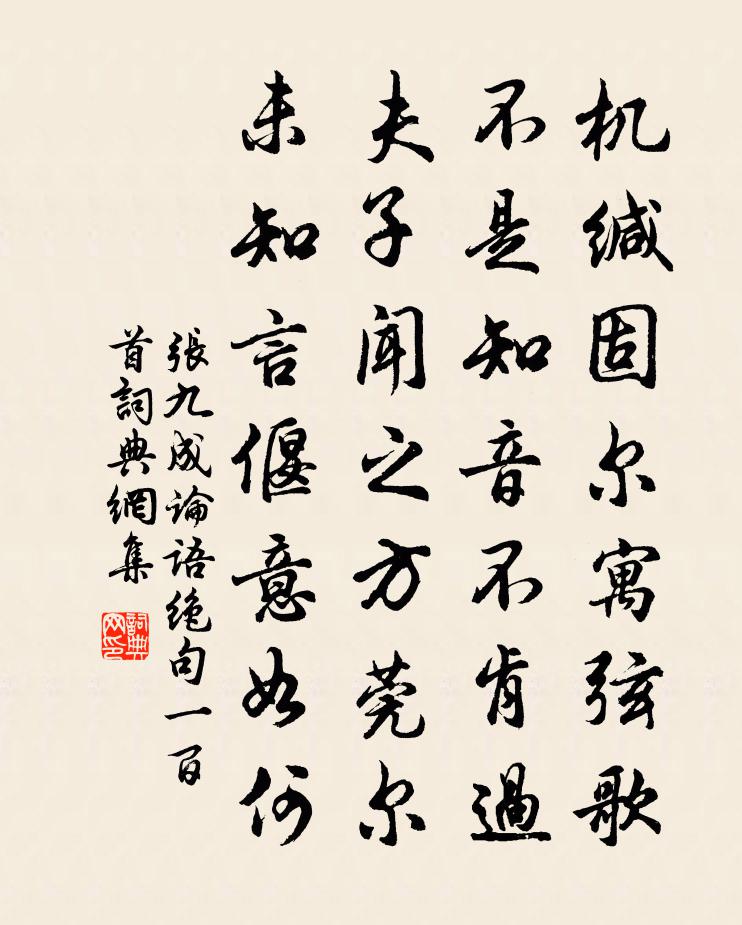 机缄固尔寓弦歌
不是知音不肯過
夫子闻之方莞尔
未知言偃意如何
張九成論語绝句一百
首詞典網集
詞典网印